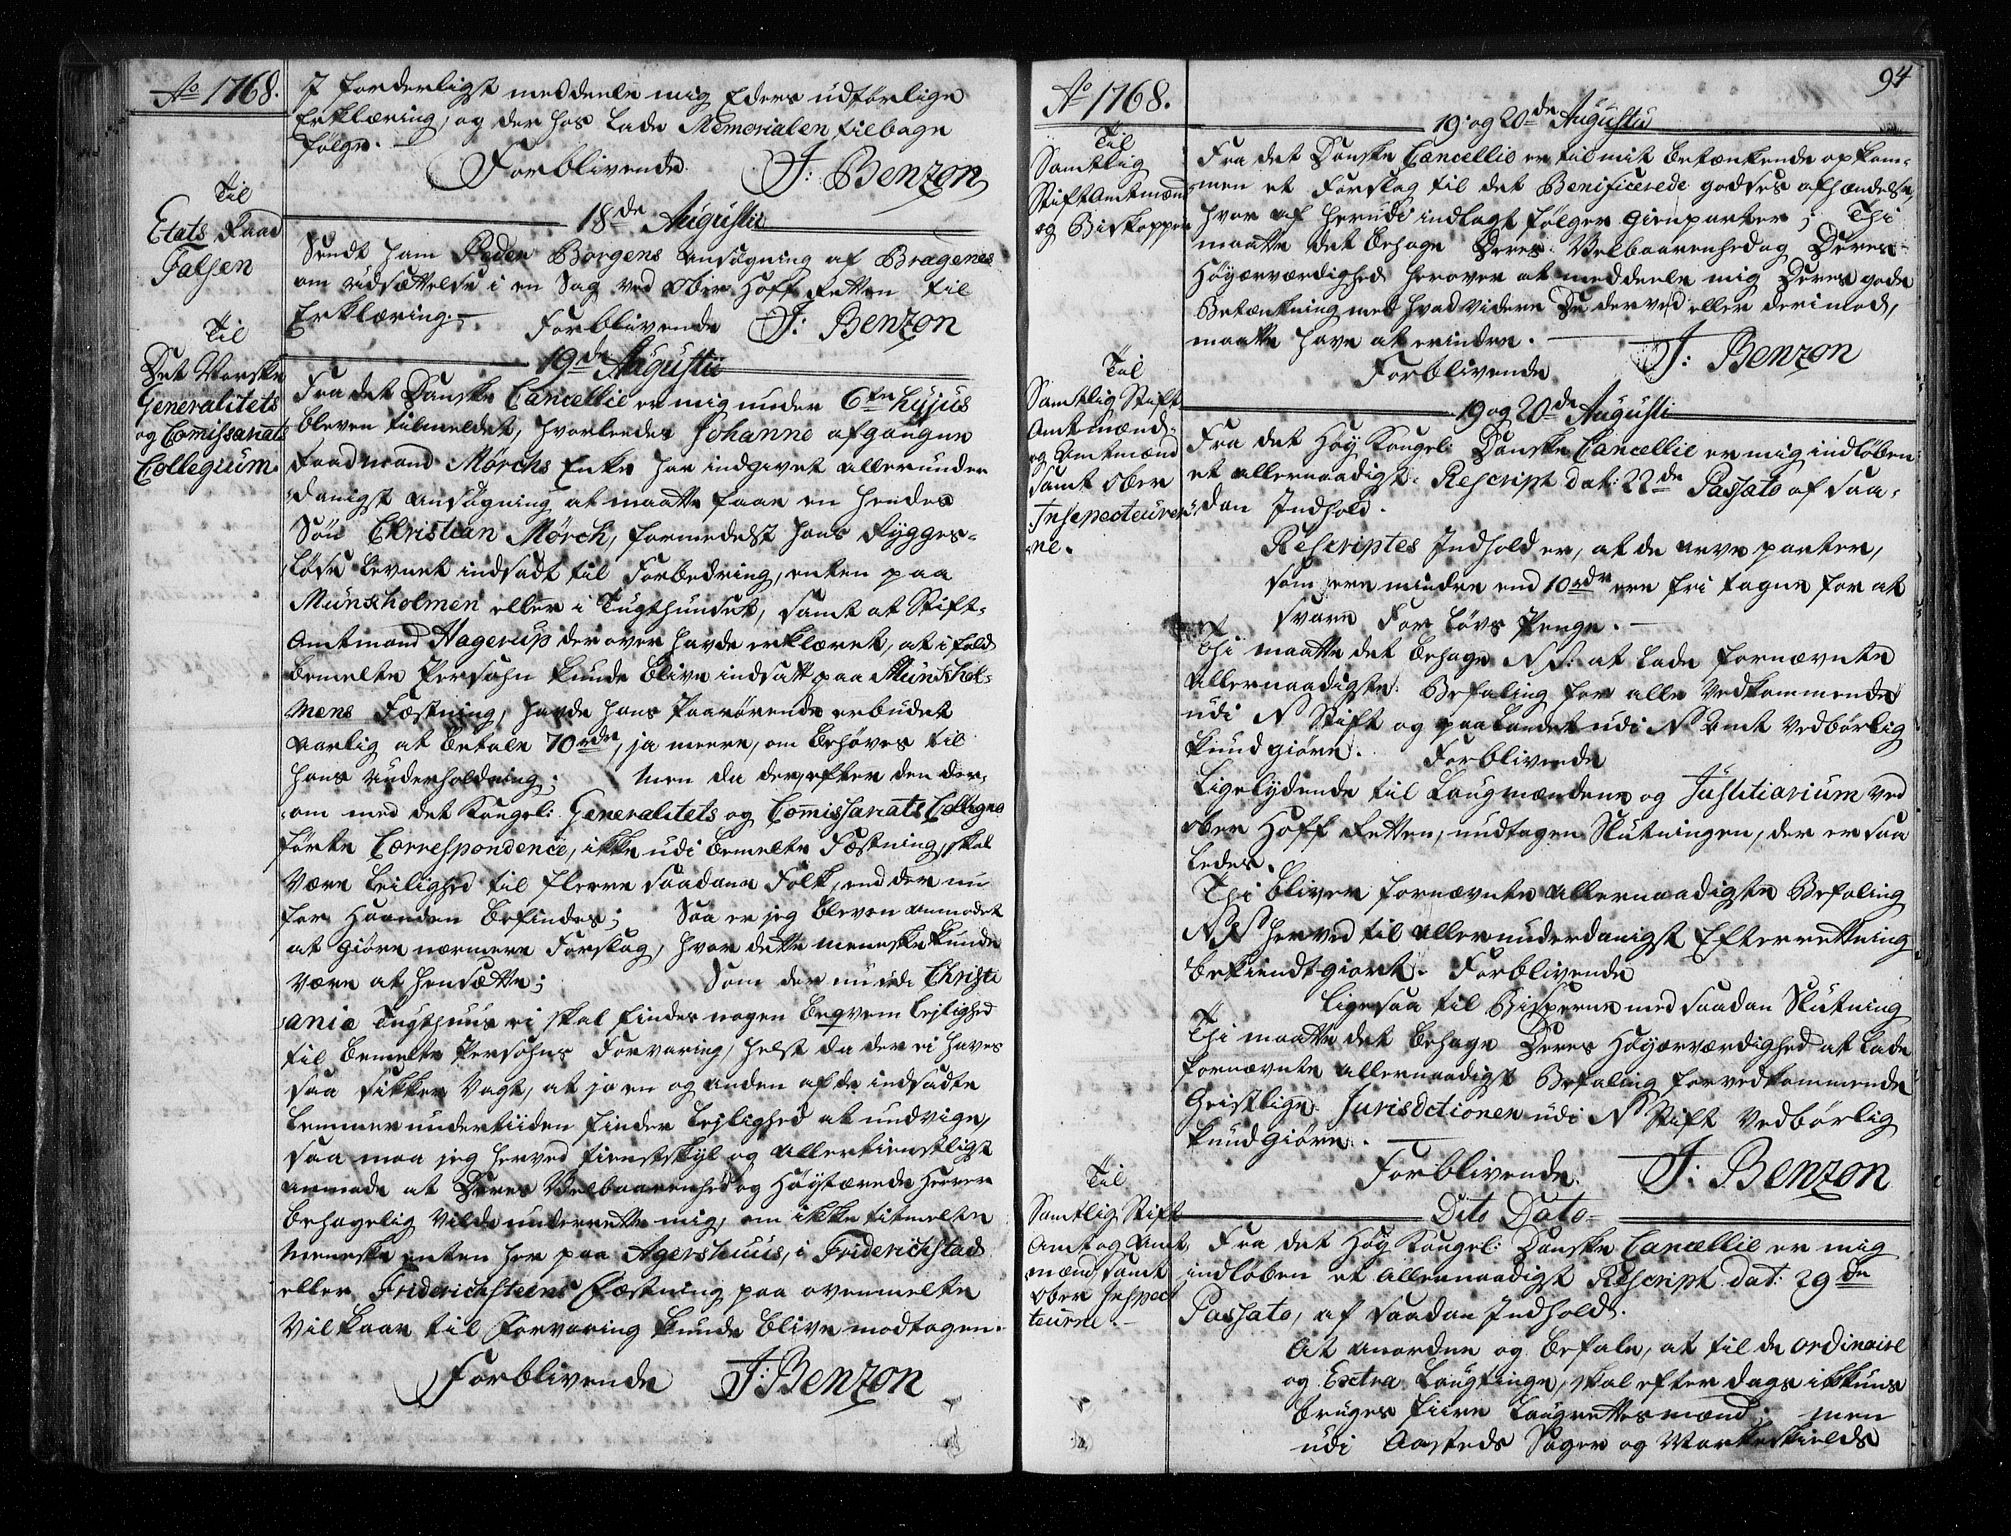 Ao 1768.
7 forderligst meddeele mig Eders udførlige
Erklæring, og der hos lade Memorialen tilbage
følge.
Forblivende J: Benzon
18de Augustii
Til
Etats Raad
Falsen
Sendt ham Peder Borgens Ansøgning af Bragenes
om Udsættelse i en Sag ved Ober Hoff Retten til
Erklæring. Forblivende J: Benzon
19de Augustii
Til
Det Norske
Generalitets
og Comissariats
Collegium.
Fra det Danske Cancellie er mig under 6ten hujus
bleven tilmeldet, hvorledes Johanne afgangne
Raadmand Mørchs Enke har indgivet allerunder
danigst Ansøgning at maatte faae en hendes
Søn Christian Mørch, formedelst hans Rygges-
løse Levnet indsadt til Forbedring, enten paa
Munkholmen eller i Tugthuuset, samt at Stift-
Amtmand Hagerup derover havde erklæret, at i fald
bemelte Persohn kunde blive indsatt paa Munkhol-
mens Fæstning, havde hans Paarørende erbudet
aarlig at betale 70 rdr, ja meere, om behøves til
hans underholdning; Men da der, efter den der-
om med det Kongel: Generalitets og Comissariats Collegio
førte Correspondence, ikke udi bemelte Fæstning, skal
være Leilighed til fleere saadane Folk, end der nu
for Haanden befindes; Saa er jeg bleven anmodet
at giøre nærmere Forslag, hvor dette Menneske kunde
være at hensætte; Som der nu udi Christi
ania Tugthuus ei skal findes nogen beqvem Lejlighed
til bemelte Persohns Forvaring, helst da der ei haves
saa sikker Vagt, at jo en og anden af de indsadte
Lemmer undertiiden finder Lejlighed at undvige,
saa maa jeg herved tienstskyl og allertienstligst
anmode at Deres Velbaarenhed og Høystærede Herrer
behagelig vilde underrette mig, om ikke titmelte
Menneske enten her paa Agershuus, i Friderichstad
eller Friderichsteens Fæstning paa ovenmelte
Vilkaar til Forvaring kunde blive modtagen.
Forblivende J: Benzon
94
Ao 1768.
19. og 20de Augustii
Til
Samtlig
StiftAmtmænd
og Biskopper
Fra det Danske Cancellie er til mit betænkende opkom-
men et Forslag til det Benificerede godses afhændelse,
hvor af herudi indlagt følger gienparter; Thi
maatte det behage Deres Velbaarenhed og Deres
Høyærværdighed herover at meddeele mig Deres gode
Betænkning med hvad videre De derved eller derimod,
maatte have at erindre.
Forblivende J: Benzon
19 og 20de Augusti
Til
Samtlig Stift
Amtmænd
og Amtmænd
samt Ober
Inspecteurer
ne.
Fra det Høy Kongel: Danske Cancellie er mig indløben
et allernaadigst: Rescript dat: 22de Passato af saa-
dan Indhold.
Rescriptes Indhold er, at de arve parter,
som ere mindre end 10 rdr ere fri tagne for at
svare For Løvs Penge.
Thi maatte det behage N N: at lade fornævnte
Allernaadigste: Befaling for alle Vedkommende
udi N Stift og paa Landet udi N Amt vedbørlig
kundgiøre. Forblivende
Ligelydende til Laugmændene og Justitiarium ved
Ober Hoff Retten, undtagen Slutningen, der er saa
ledes.
Thi bliver fornævnte allernaadigste Befaling
N N herved til allerunderdanigst Efterrettning
bekiendtgiort. Forblivende
Ligesaa til Bisperne med saadan Slutning
Thi maatte det behage Deres Høyærværdighed at lade
fornævnte allernaadigst Befaling for vedkommende
Geistlige Jurisdictionen udi N Stift vedbørlig
kundgiøre.
Forblivende. J: Benzon
Dito Dato
Til
Samtlig Stift
Amt og Amt
mænd samt
Ober Inspec
teurne.
Fra det Høy Kongel: Danske Cancellie er mig
indløben et Allernaadigst Rescript dat: 29de
Passato, af saadan Indhold.
At anordne og befale, at til de ordinaire
og Extra Laugtinge, skal efter dags ikkuns
bruges fiire Laugrettesmænd; men
udi Aasteds Sager og Markeskields